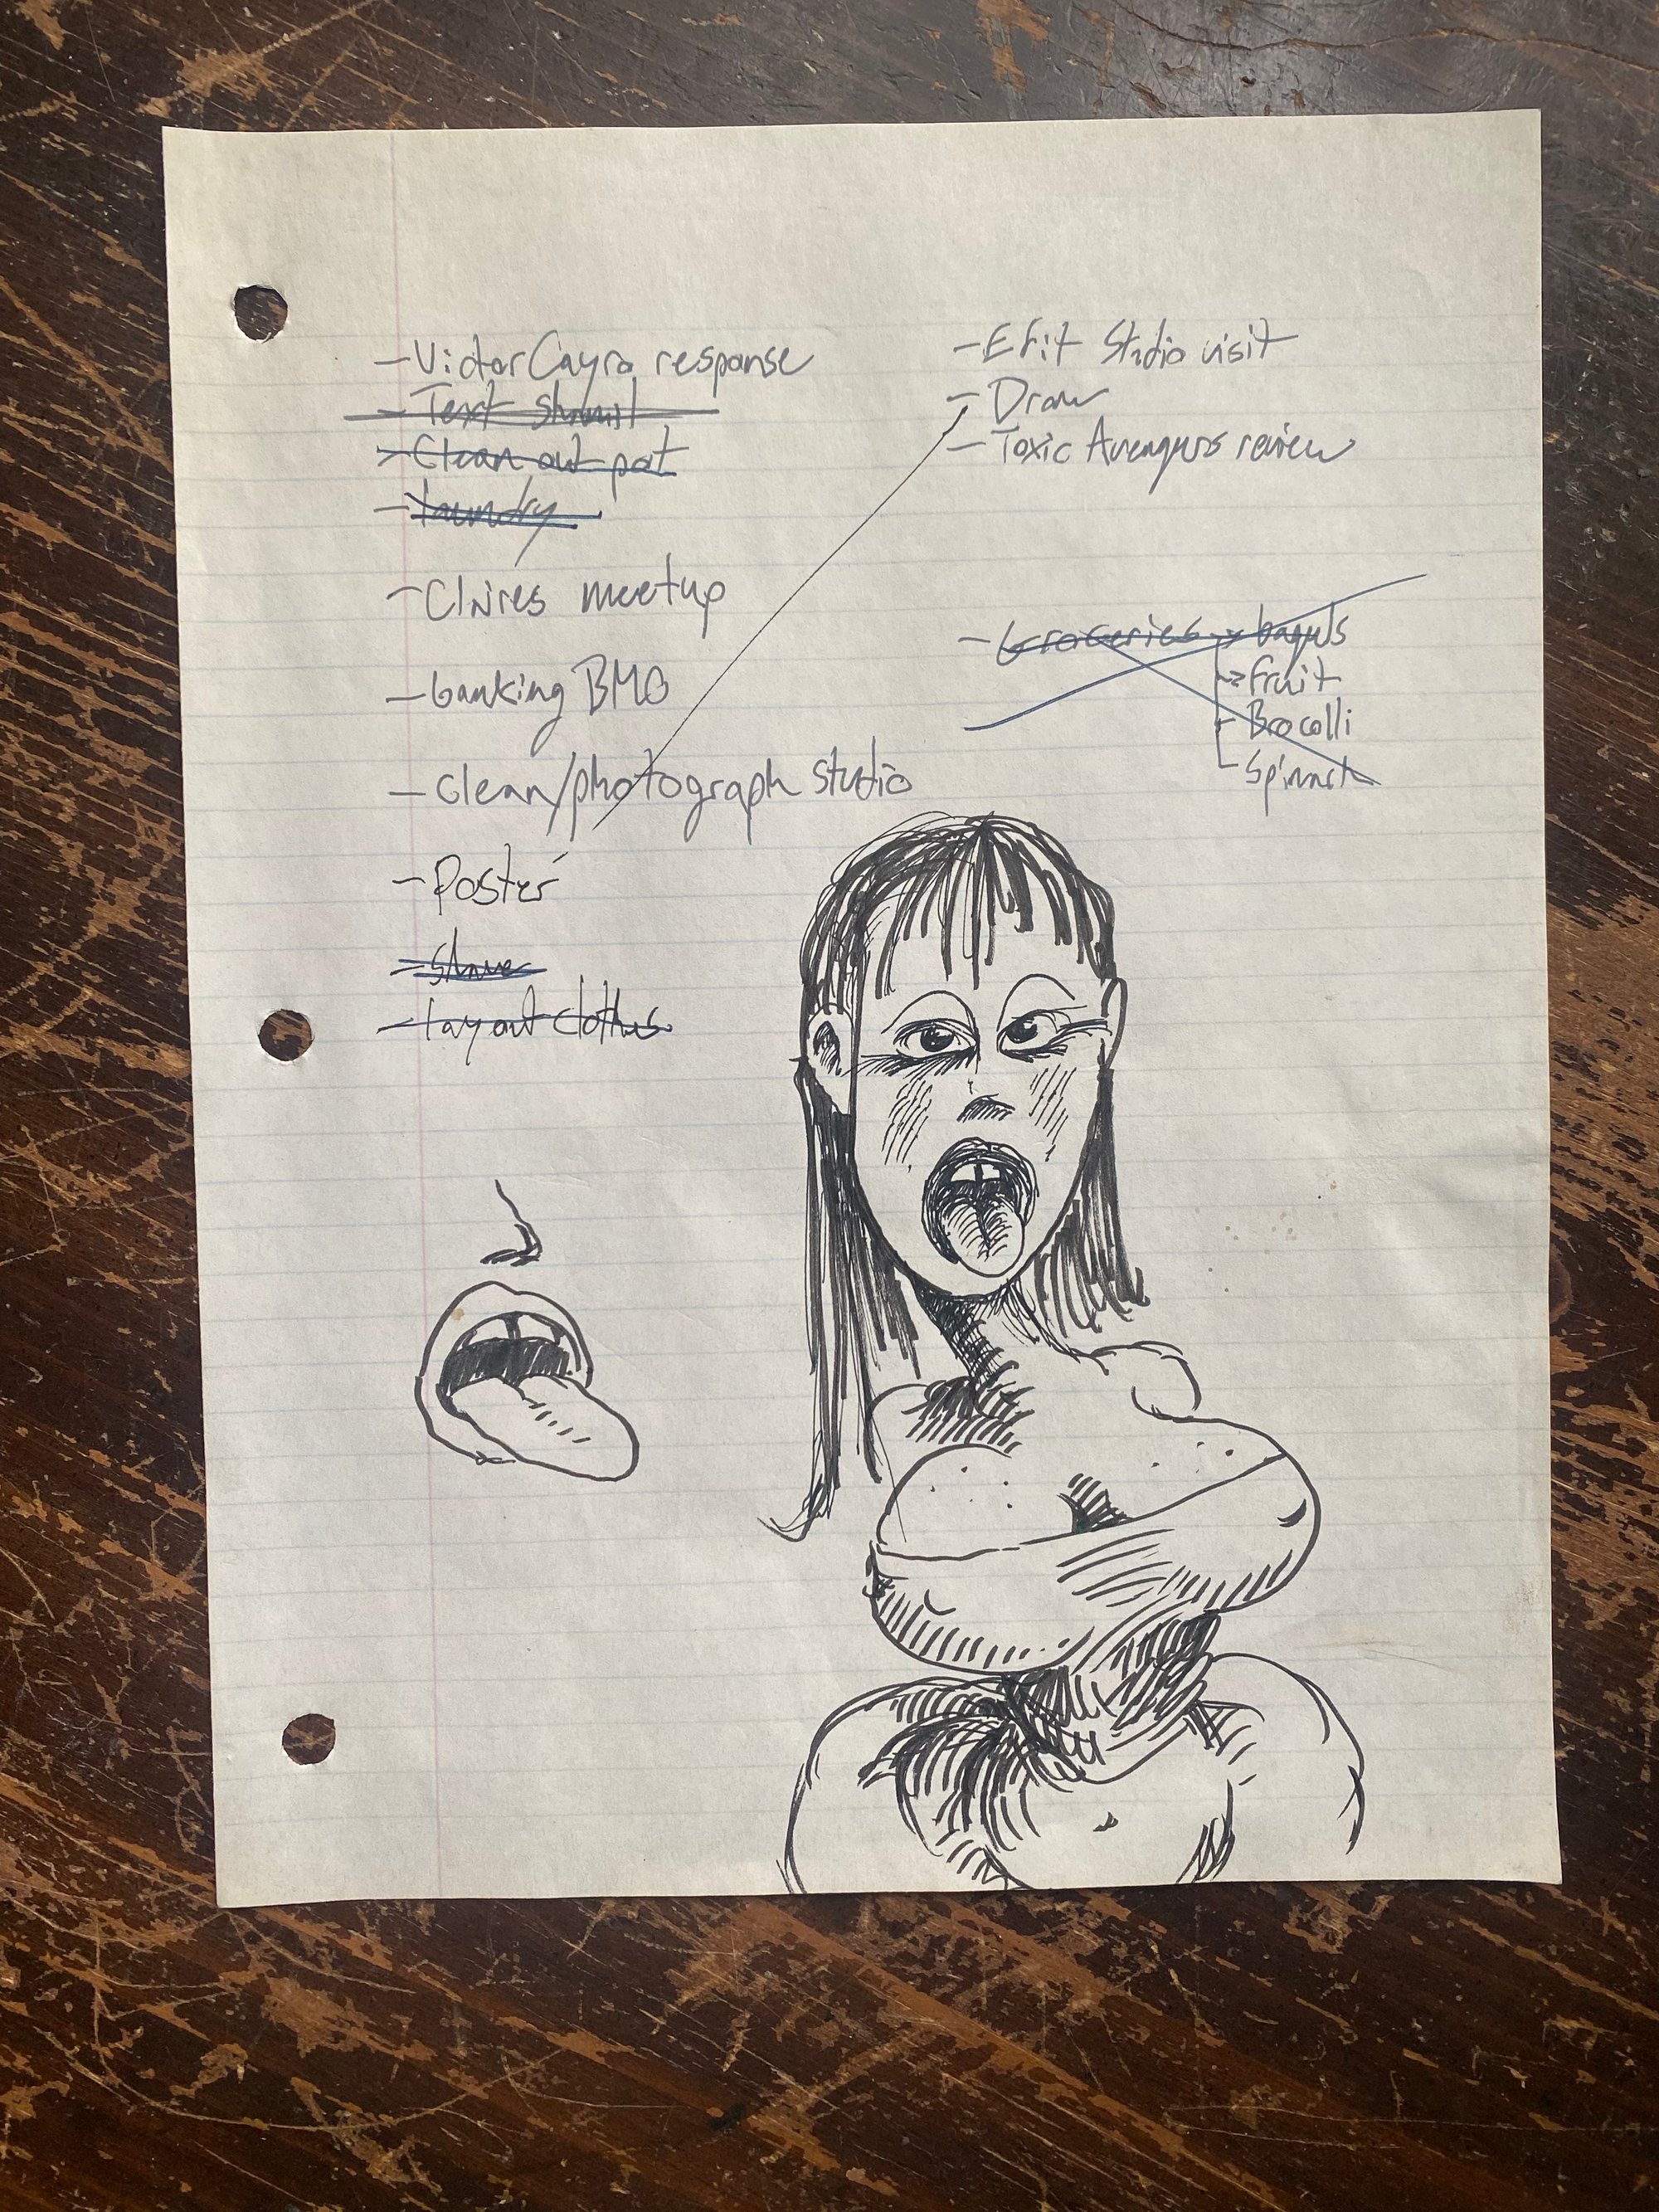 - Victor Cayro response
- Text
- Clean out pot
- laundry
- Claires meetup
- banking BMO
- Clean/photograph studio
- Poster
- shave
- lay out clothes
- Edit Studio visit
- Draw
- Toxic Avengers review
- Groceries → bagels
→ fruit
- Brocolli
- Spinach